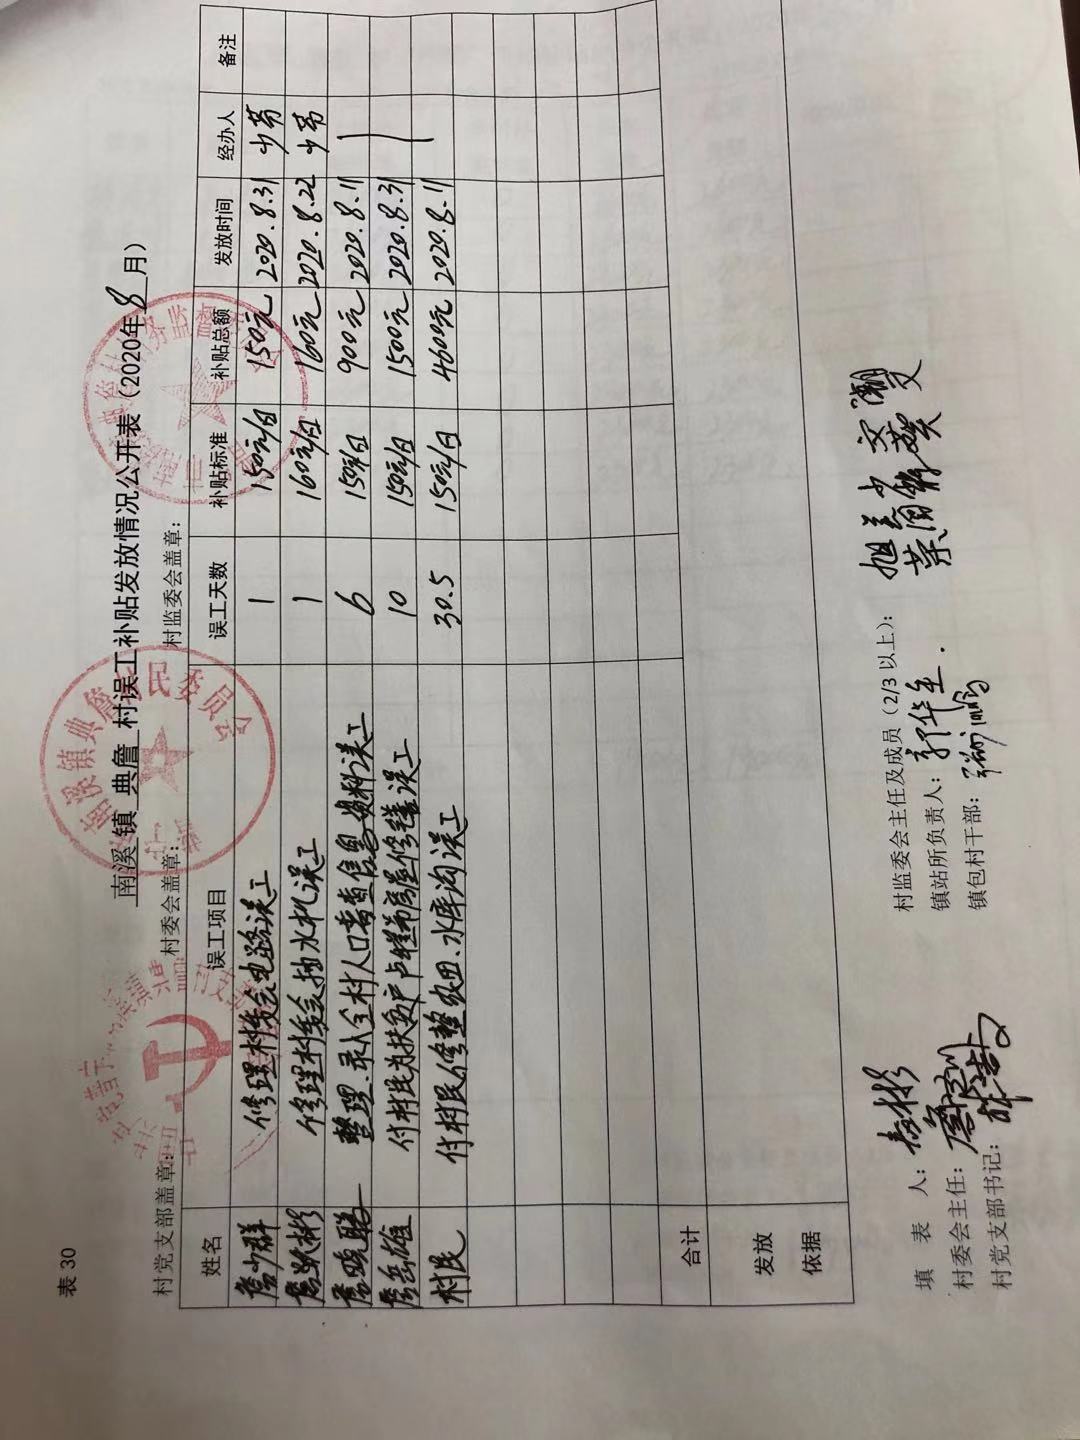 表 30
南溪 镇 典詹 村误工补贴发放情况公开表（2020年 8 月）
村党支部盖章： 村委会盖章： 村监委会盖章：
姓名 误工项目 误工天数 补贴标准 补贴总额 发放时间 经办人 备注
詹少群 修理村委会电路误工 1 150元/日 150元 2020.8.31 少芳
詹跃彬 修理村委会抽水机误工 1 160元/日 160元 2020.8.22 少芳
詹晓聪 整理、录入全村人口普查信息资料误工 6 150元/日 900元 2020.8.11
詹岳雄 付村民为扶贫户 房屋修缮误工 10 150元/日 1500元 2020.8.31
村民 付村民修整农田、水库沟误工 30.5 150元/日 4600元 2020.8.11
合计
发放依据
填 表 人： 村监委会主任及成员（2/3 以上）：
村委会主任： 镇站所负责人：
村党支部书记： 镇包村干部：